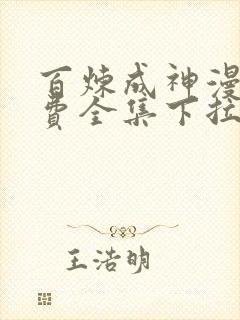 百炼成神漫
费全集下拉
王浩明